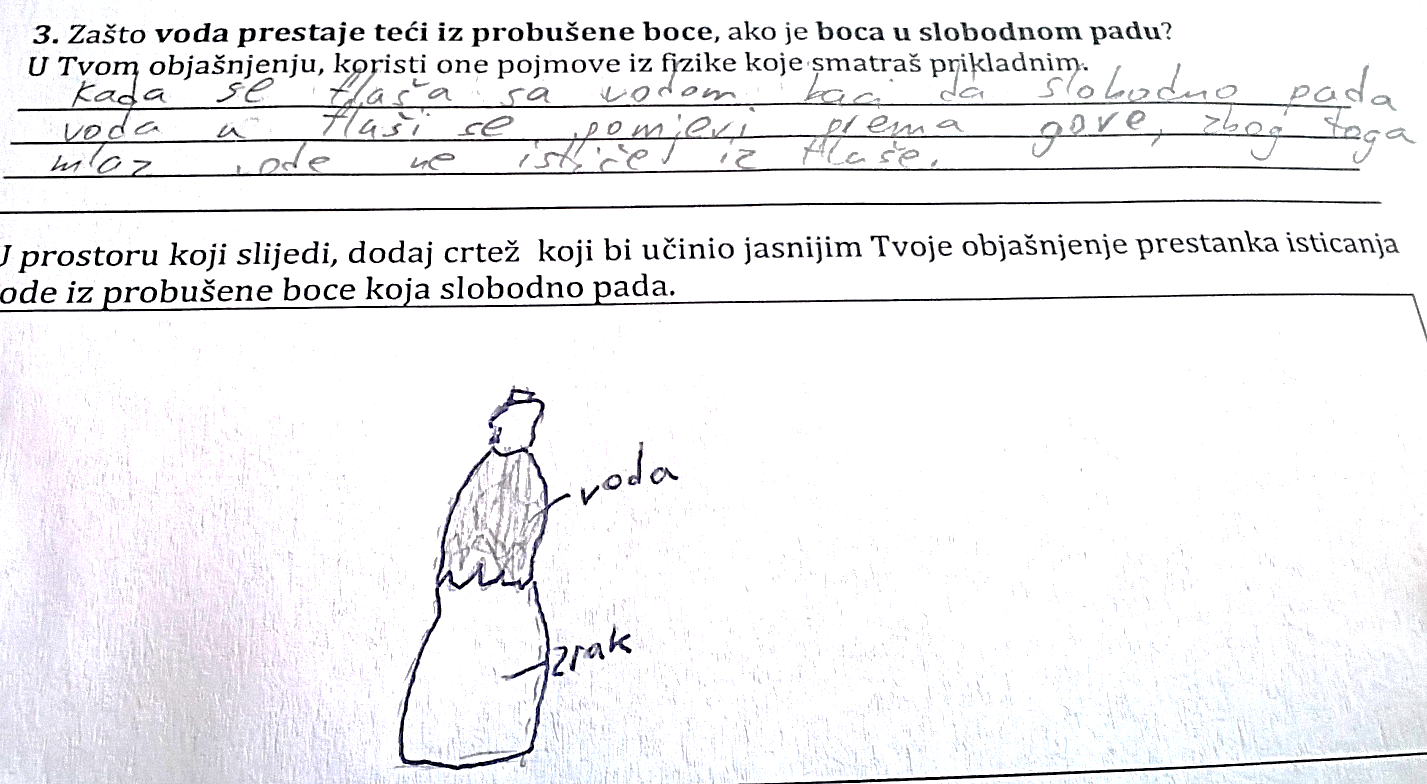 3. Zašto voda prestaje teći iz probušene boce, ako je boca u slobodnom padu?
U Tvom objašnjenju, koristi one pojmove iz fizike koje smatraš prikladnim.
Kada se flaša sa vodom baci da slobodno pada
voda u flaši se pomjeri prema gore, zbog toga
mlaz vode ne ističe iz flaše.
U prostoru koji slijedi, dodaj crtež koji bi učinio jasnijim Tvoje objašnjenje prestanka isticanja
ode iz probušene boce koja slobodno pada.
voda
zrak